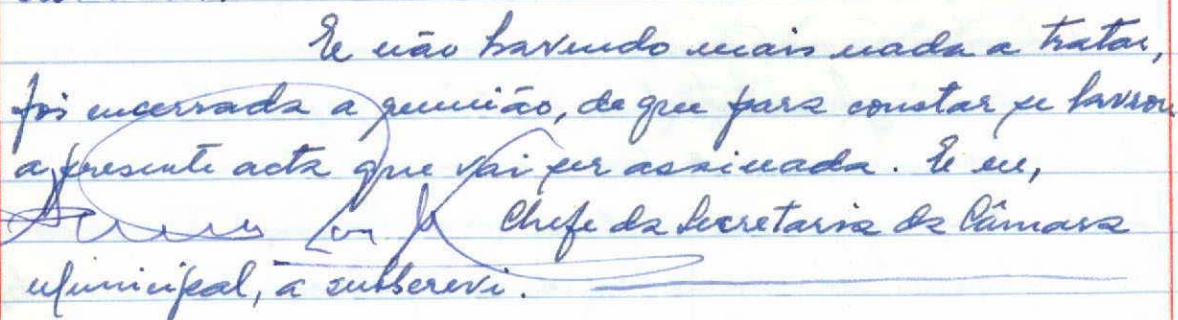 E não havendo mais nada a tratar,
foi encerrada a reunião, de que para constar se lavrou
a presente acta que vai ser assinada. E eu,
Chefe da Secretaria da Câmara
Municipal, a subscrevi.